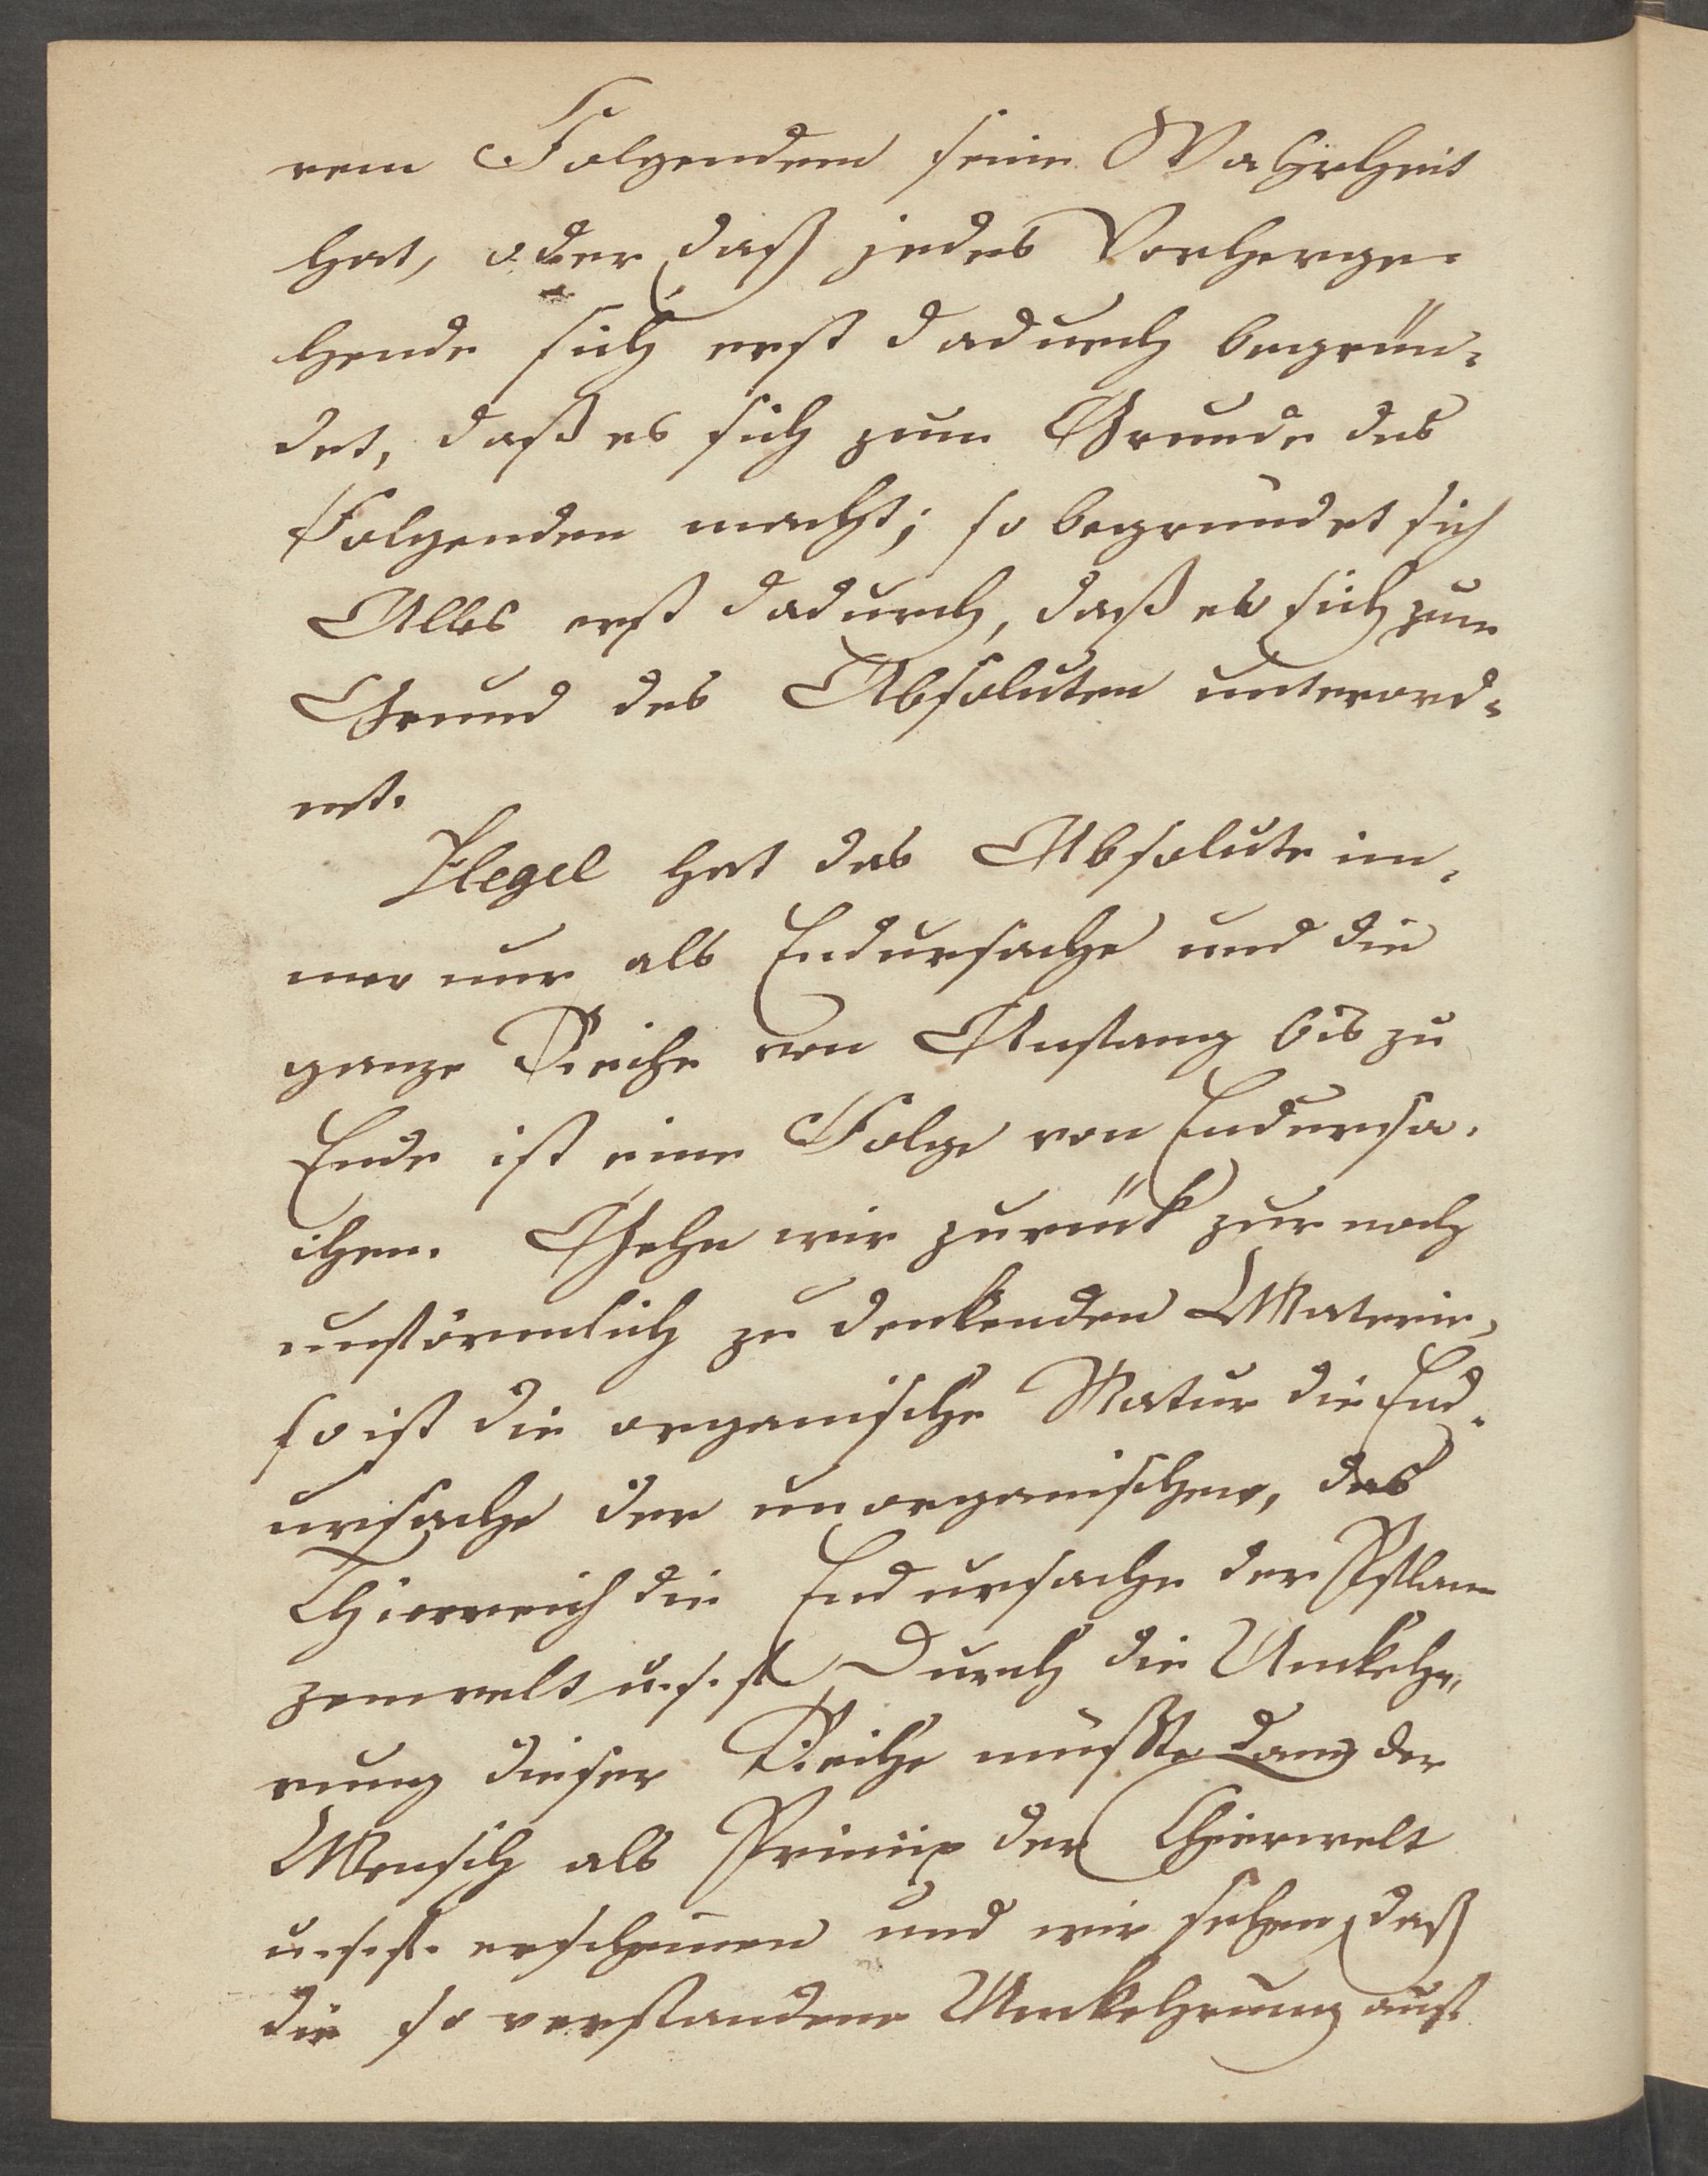 rem Folgendem seine Wahrheit
hat, oder daß jedes Vorherge-
hende sich erst dadurch begrün-
det, daß es sich zum Grunde des
Folgenden macht; so begründet sich
Alles erst dadurch, daß es sich zum
Grund des Absoluten unterord-
net.
Hegel hat das Absolute im-
mer nur als Endursache und die
ganze Reihe von Anfang bis zu
Ende ist eine Folge von Endursa-
chen. Gehn wir zurük zur noch
unförmlich zu denkenden Materie,
so ist die organische Natur die End-
ursache der unorganischen, das
Thierreich die Endursache der Pflan-
zenwelt u. s. f. Durch die Umkeh-
rung dieser Reihe müßte dann der
Mensch als Prinzip der Thierwelt
u. s. f. erscheinen und wir sehen, daß
die so verstandene Umkehrung auf